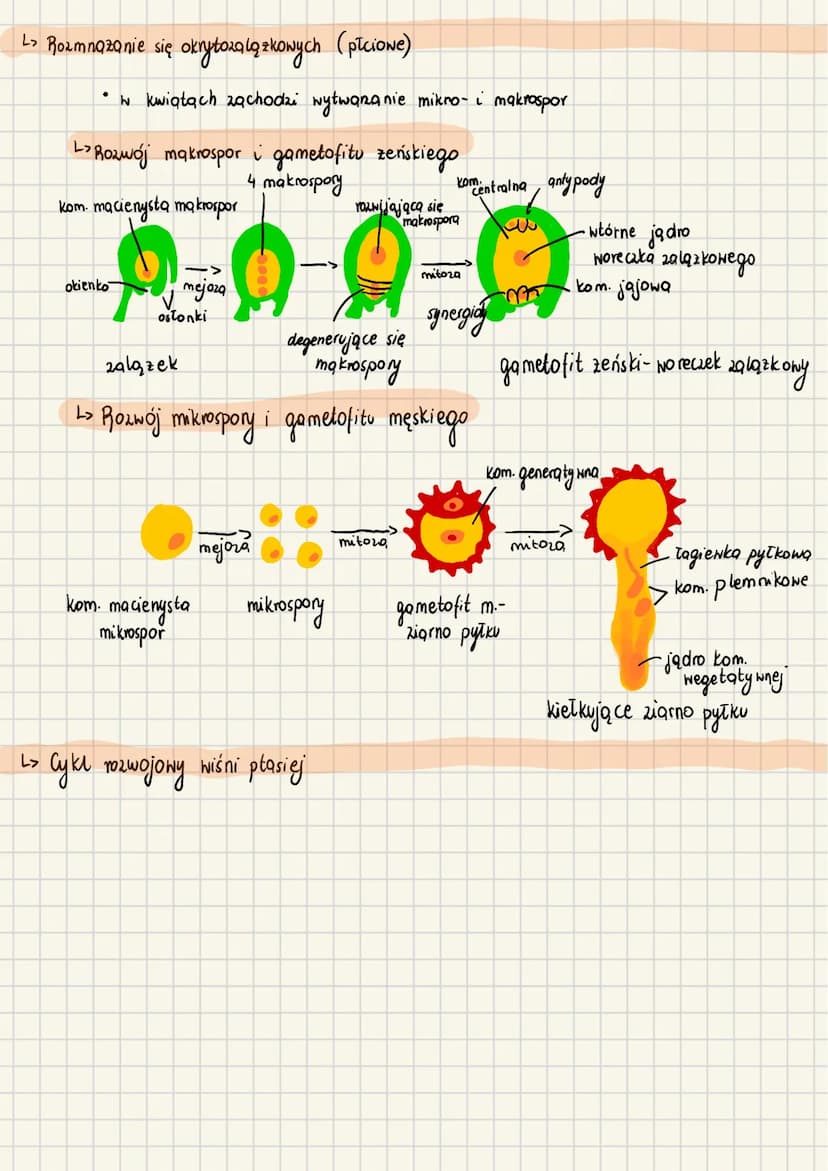 ↳ Rozmnażanie się okrytozalążkowych (płciowe)
• w kwiatach zachodzi wytwarzanie mikro- i makrospor
↳ Rozwój makrospor i gametofitu żeńskiego
kom. macierzysta makrospor
4 makrospory
rozwijająca się
makrospora
kom.
centralna
antypody
wtórne jądro
woreczka zalążkowego
okienko
mejoza
mitoza
kom. jajowa
osłonki
synergidy
degenerujące się
makrospory
zalążek
gametofit żeński - woreczek zalążkowy
↳ Rozwój mikrospory i gametofitu męskiego
kom. generatywna
mejoza
mitoza
mitoza
łagiewka pyłkowa
kom. plemnikowe
kom. macierzysta
mikrospor
mikrospory
gametofit m.-
ziarno pyłku
jądro kom.
wegetatywnej
kiełkujące ziarno pyłku
↳ Cykl rozwojowy wiśni ptasiej